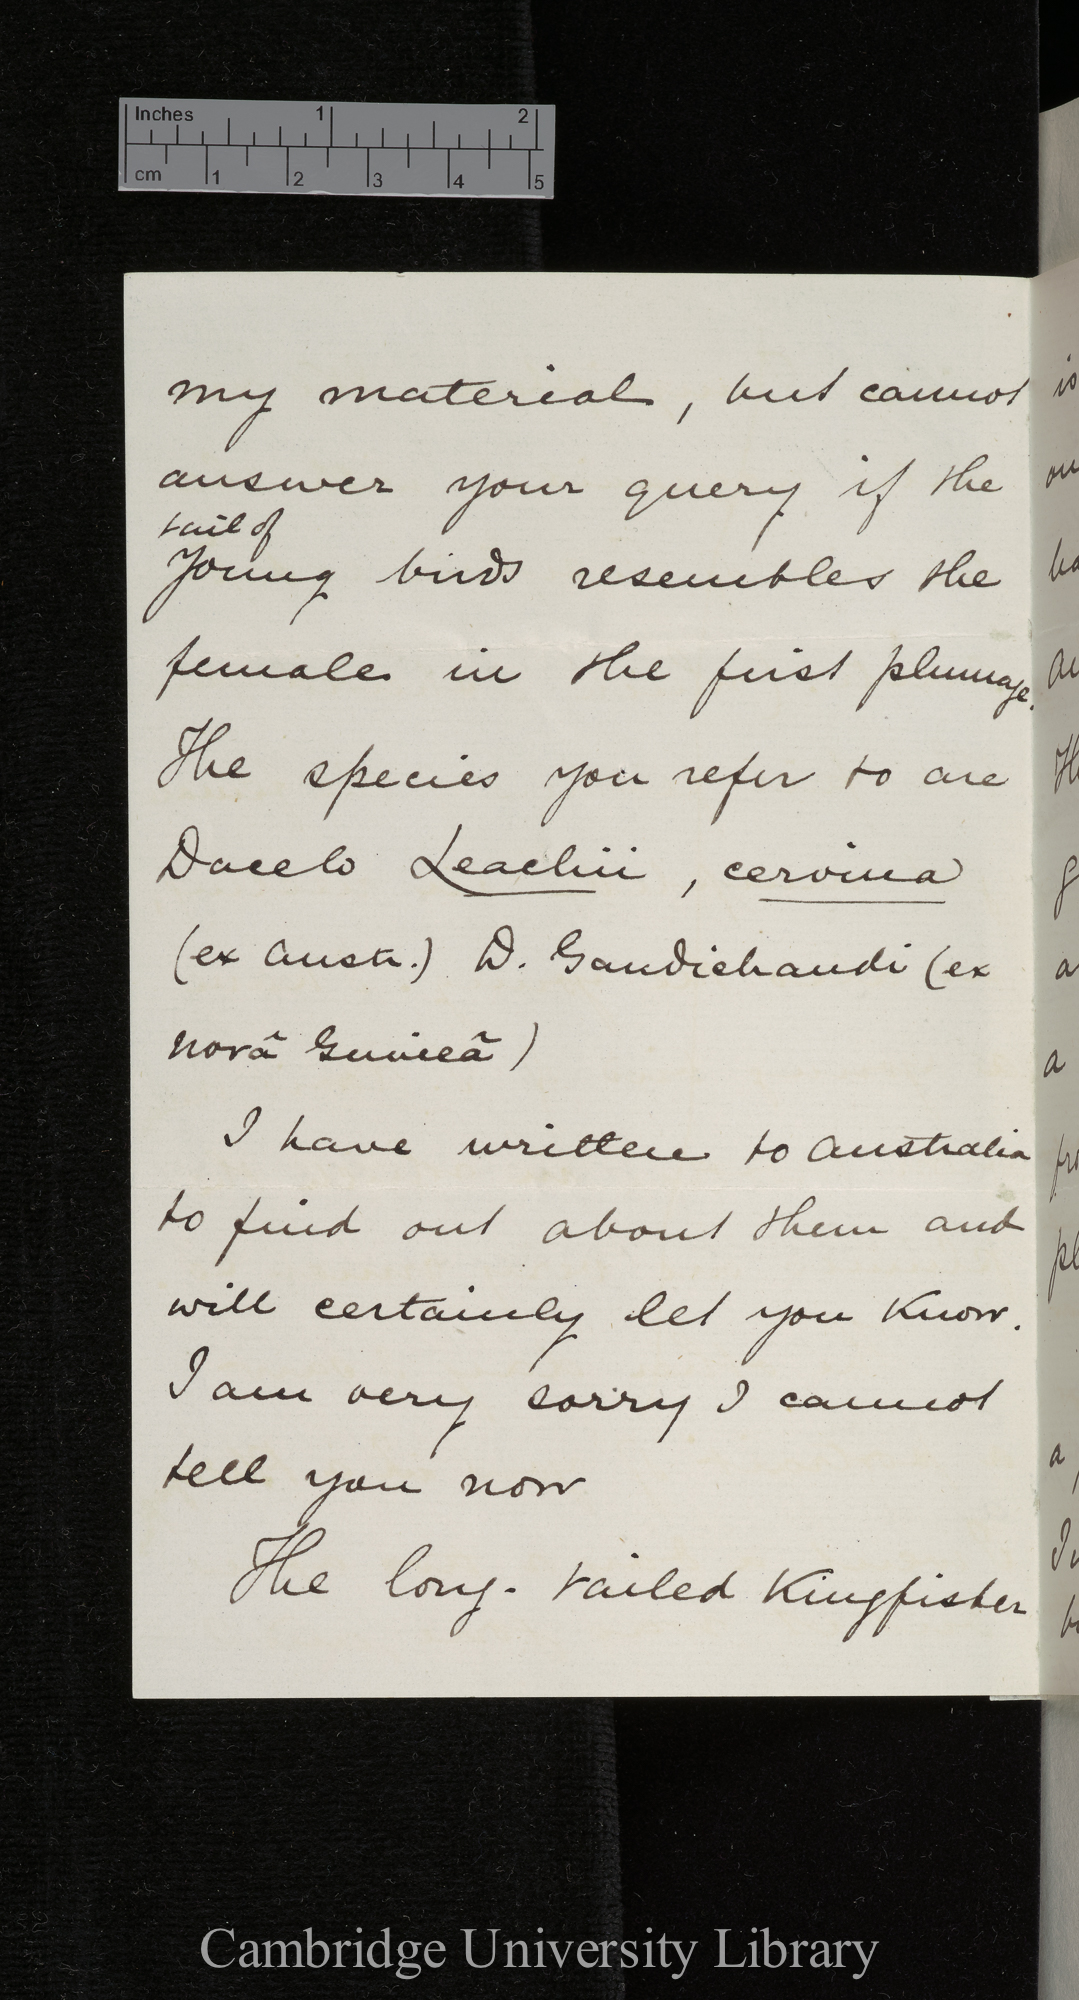 Inches 1 2
cm 1 2 3 4 5
my material, but cannot
answer your query if the
tail of
Young birds resembles the
female in the first plumage.
The species you refer to are
Dacelo Leachii, cervina
(ex Austr.) D. Gaudichaudi (ex
Novâ Guineâ)
I have written to Australia
to find out about them and
will certainly let you know.
I am very sorry I cannot
tell you now
The long-tailed Kingfisher
Cambridge University Library